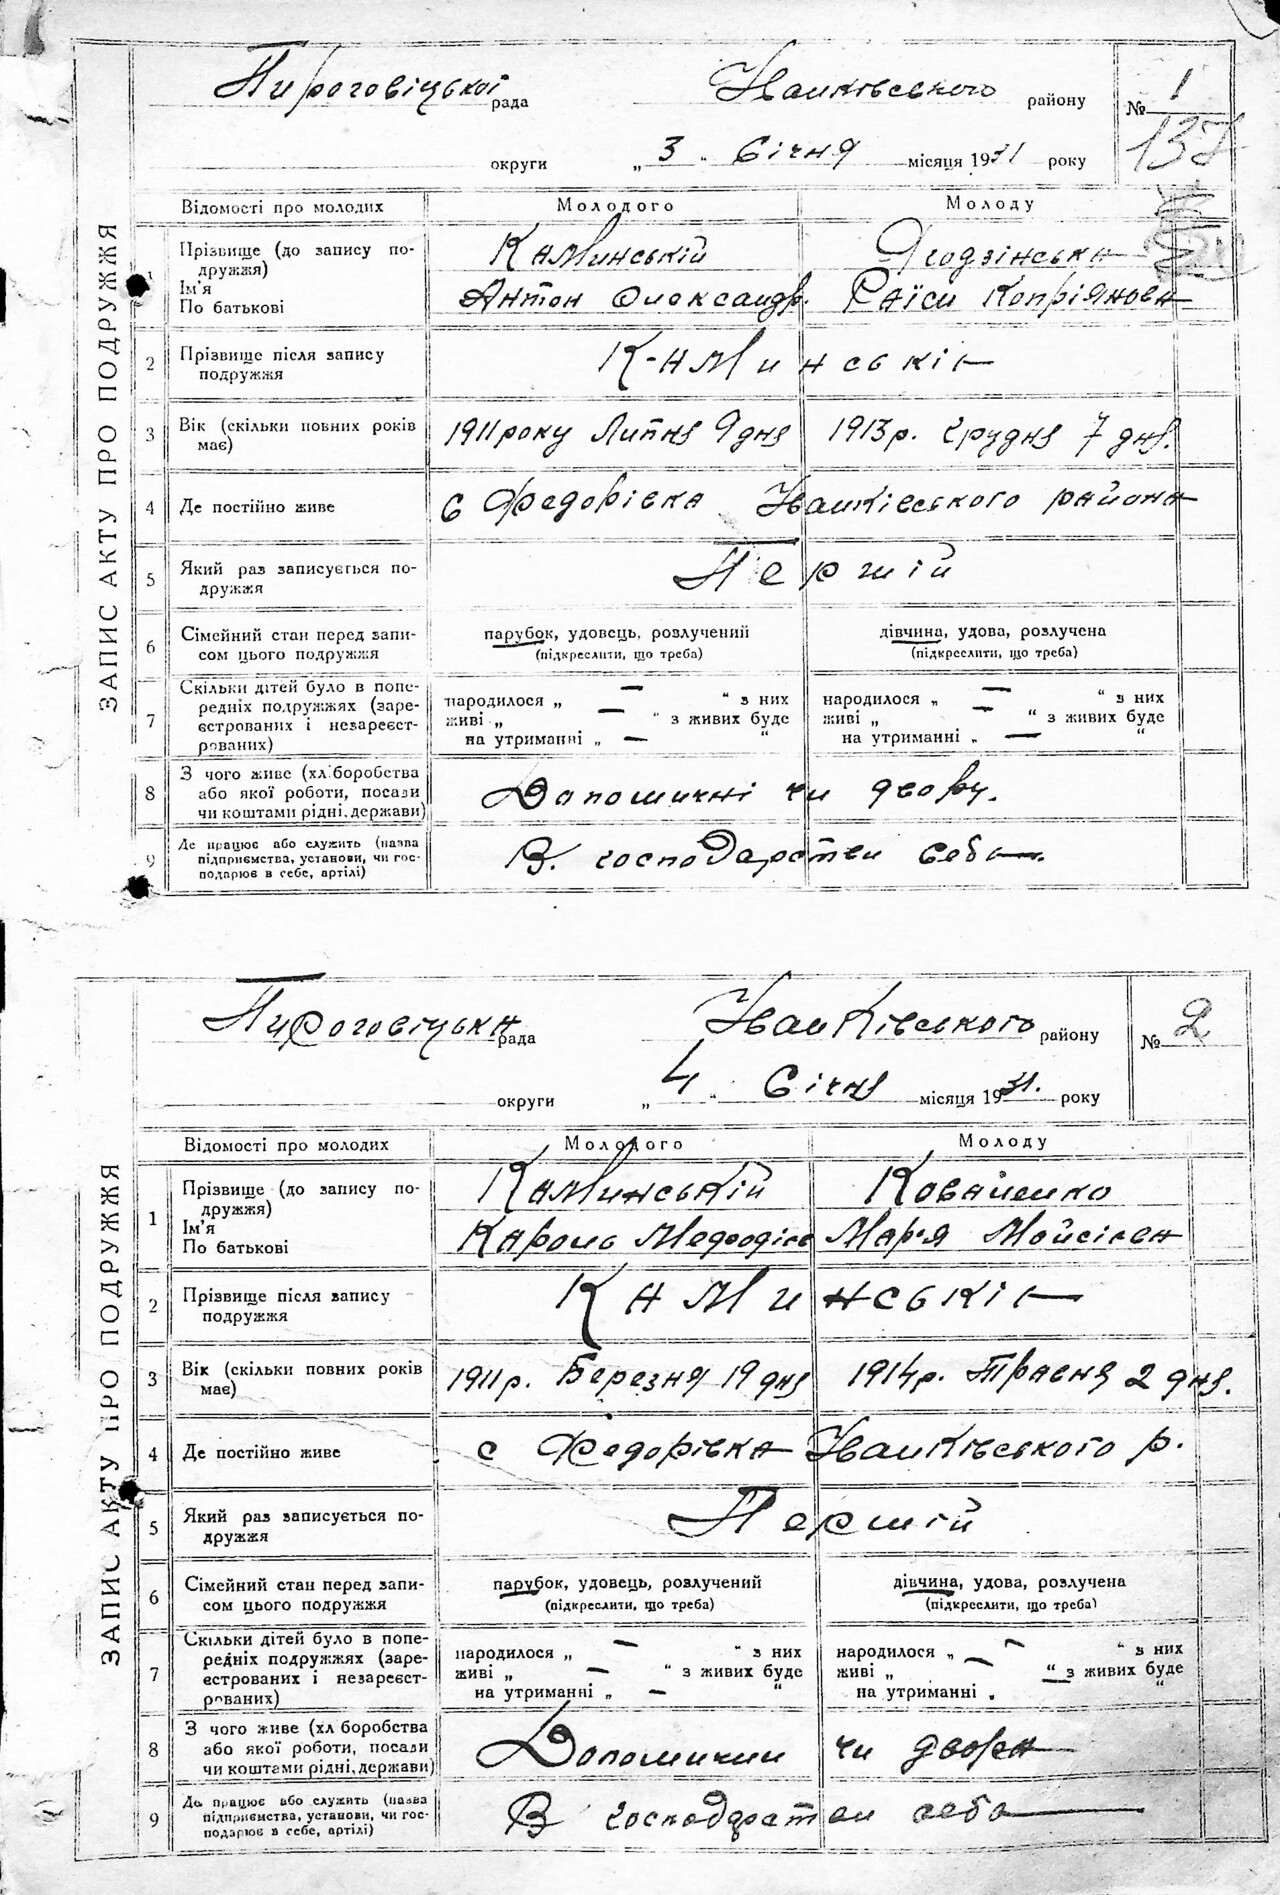 Пироговіцької рада Іванківського району № 1
137
округи „ 3 " Січня місяця 1931 року
ЗАПИС АКТУ ПРО ПОДРУЖЖЯ
Відомості про молодих Молодого Молоду
1 Прізвище (до запису по-
дружжя) Каминській Ягодзінська
Ім'я
По батькові Антон Олександр. Раїси Копріянова
2 Прізвище після запису
подружжя Каминські
3 Вік (скільки повних років
має) 1911 року Липня 9 дня 1913 р. Грудня 7 дня.
4 Де постійно живе с Федорівка Іванківського района
5 Який раз записується по-
дружжя Першій
6 Сімейний стан перед запи-
сом цього подружжя парубок, удовець, розлучений дівчина, удова, розлучена
(підкреслити, що треба) (підкреслити, що треба)
7 Скільки дітей було в попе-
редніх подружжях (заре-
єстрованих і незареєст-
рованих)
народилося „ — " з них народилося „ — " з них
живі „ — " з живих буде живі „ — " з живих буде
на утриманні „ — " на утриманні „ — "
8 З чого живе (хліборобства
або якої роботи, посади
чи коштами рідні, держави) чи двору.
9 Де працює або служить (назва
підприємства, установи, чи гос-
подарює в себе, артілі) В. господарстви себа.
Пироговіцька рада Іванківського району № 2
округи „ 4 " Січня місяця 1931. року
ЗАПИС АКТУ ПРО ПОДРУЖЖЯ
Відомості про молодих Молодого Молоду
1 Прізвище (до запису по-
дружжя) Каминській
Ім'я
По батькові Кароль Мефодієв Мар'я Мойсієвн
2 Прізвище після запису
подружжя Каминські
3 Вік (скільки повних років
має) 1911 р. Березня 19 дня 1914 р. Травня 2 дня.
4 Де постійно живе с Федорівка Іванківського р.
5 Який раз записується по-
дружжя Першій
6 Сімейний стан перед запи-
сом цього подружжя парубок, удовець, розлучений дівчина, удова, розлучена
(підкреслити, що треба) (підкреслити, що треба)
7 Скільки дітей було в попе-
редніх подружжях (заре-
єстрованих і незареєст-
рованих)
народилося „ — " з них народилося „ — " з них
живі „ — " з живих буде живі „ — " з живих буде
на утриманні „ — " на утриманні „ "
8 З чого живе (хліборобства
або якої роботи, посади
чи коштами рідні, держави) чи двора
9 Де працює або служить (назва
підприємства, установи, чи гос-
подарює в себе, артілі) В господрстви себа